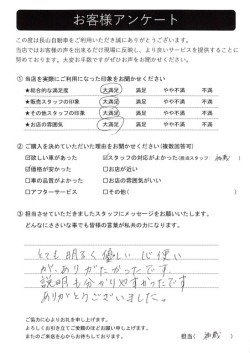 お客様アンケート
この度は長山自動車をご利用いただき誠にありがとうございます。
当店ではお客様の声を出来るだけ現場に反映し、より良いサービスを提供することに
努めております。大変お手数ですがぜひお声をお聞かせください。
① 当店を実際にご利用になった印象をお聞かせください
★総合的な満足度 大満足 満足 やや不満 不満
★販売スタッフの印象 大満足 満足 やや不満 不満
★その他スタッフの印象 大満足 満足 やや不満 不満
★お店の雰囲気 大満足 満足 やや不満 不満
② ご購入を決めていただいた理由をお聞かせください(複数回答可)
☑欲しい車があった ☑スタッフの対応がよかった(担当スタッフ
☑価格が安かった □お店が近い
□車の品質がよかった □お店の雰囲気がいい
□アフターサービス □その他(
③ 担当させていただきましたスタッフにメッセージをお願いいたします。
どんなにささいな事でも皆様の言葉が私共の力になります。
とても明るく優しい心使い
が、ありがたかったです。
説明も分かりやすかったです
ありがとうございました。
ご協力に心よりお礼を申し上げます。
よろしくお引き立てご愛顧のほどお願い申し上げます。
またのご来店を心からお待ちしております。
担当(